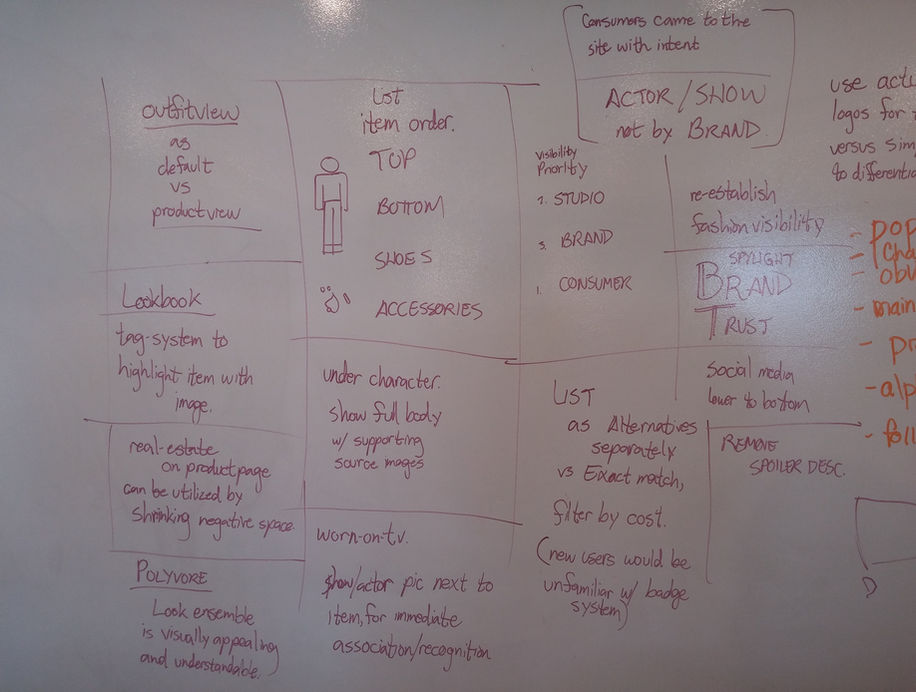 outfitview
as
default
vs
productview
Lookbook
tag-system to
highlight item with
image.
real-estate
on productpage
can be utilized by
shrinking negative space.
POLYVORE
Look ensemble
is visually appealing
and understandable.
LIST
item order.
TOP
BOTTOM
SHOES
ACCESSORIES
under character.
show full body
w/ supporting
source images
worn-on-tv.
show/actor pic next to
item, for immediate
association/recognition
Consumers came to the
site with intent
ACTOR / SHOW
not by BRAND.
visibility
Priority
2. STUDIO
3. BRAND
1. CONSUMER
LIST
as Alternatives
separately
vs Exact match,
filter by cost.
(new users would be
unfamiliar w/ badge
system)
re-establish
fashion visibility
SPYLIGHT
BRAND
TRUST
social media
lower to bottom
REMOVE
SPOILER DESC.
use actu
logos for
versus sim
to differentia
- pop
- (cha
- obv
- main
- pr
- alp
- foll
D